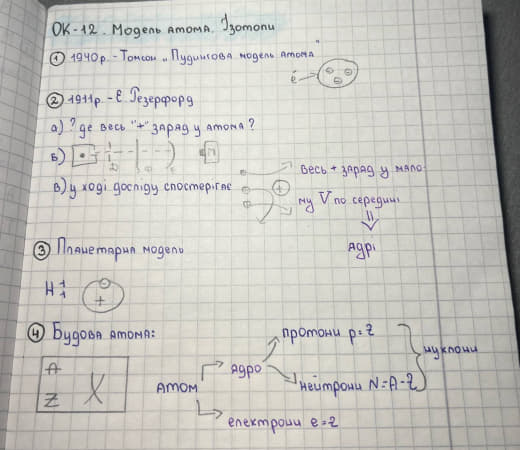 ОК-12. Модель атома. Ізотопи
① 1940р. - Томсон „Пудингова модель атома"
ē
② 1911р. - Е. Резерфорд
а) ? де весь "+" заряд у атома?
б)
в) у ході досліду спостерігає
весь + заряд у мало-
му V по середині
ядрі
③ Планетарна модель
Н 1 1
+
④ Будова атома:
протони p=Z
нуклони
A
Z X
атом
ядро
нейтрони N=A-Z
електрони e=Z